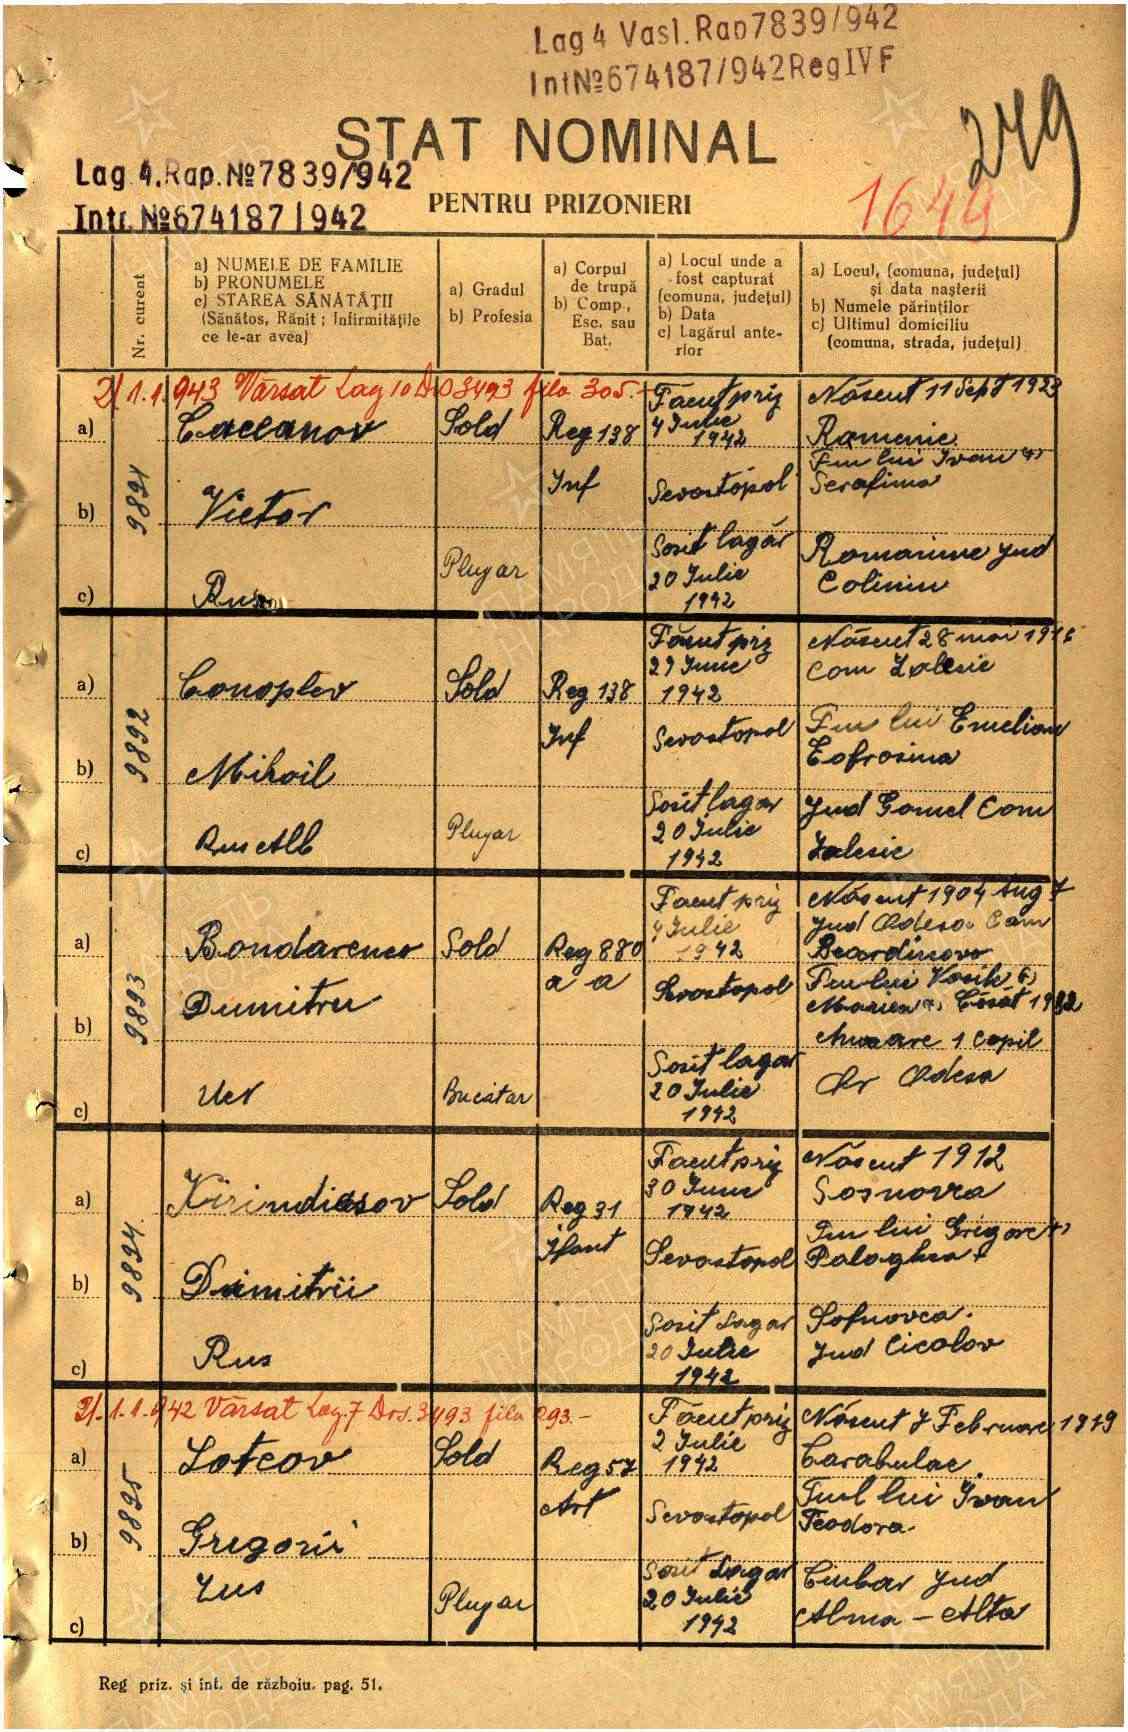 Lag 4 Vasl. Rap 7839/942
Int №674187/942 Reg IV F
STAT NOMINAL
279
Lag 4. Rap. №7839/942
PENTRU PRIZONIERI
1649
Intr. №674187/942
Nr. curent
a) NUMELE DE FAMILIE
b) PRONUMELE
c) STAREA SĂNĂTĂȚII
(Sănătos, Rănit; Infirmitățile
ce le-ar avea)
a) Gradul
b) Profesia
a) Corpul
de trupă
b) Comp.,
Esc. sau
Bat.
a) Locul unde a
fost capturat
(comuna, județul)
b) Data
c) Lagărul ante-
rior
a) Locul, (comuna, județul)
și data nașterii
b) Numele părinților
c) Ultimul domiciliu
(comuna, strada, județul)
21.1.1.943 Vărsat Lag 10 D 3493 fila 305.-
9891
a)
b)
c)
Caclanov
Victor
Rus
Sold
Plugar
Reg 138
Inf
Facut priz
4 Iulie
1942
Sevostopol
Sosit lagăr
20 Iulie
1942
Născut 11 Sept 1923
Ramenie
Fiu lui Ivan
Serafima
Romanime Jud
Colinin
9892
a)
b)
c)
Conoplev
Mihail
Rus Alb
Sold
Plugar
Reg 138
Inf
Făcut priz
29 Iunie
1942
Sevostopol
Sosit lagar
20 Iulie
1942
Născut 28 mai 1916
Com Zalesie
Fiu lui Emelian
Eofrosina
Jud Gomel Com
Zalesie
9893
a)
b)
c)
Bondarenco
Dumitru
Ucr
Sold
Bucătar
Reg 880
a a
Facut priz
4 Iulie
1942
Sevostopol
Sosit lagar
20 Iulie
1942
Născut 1904 Aug 7
Jud Odesa Com
Beardinovo
Fiu lui Vasile
Maria Căsăt 1932
are 1 copil
Or Odesa
9894
a)
b)
c)
Kirindiasov
Dimitrii
Rus
Sold
Reg 31
Ifant
Facut priz
30 Iunie
1942
Sevostopol
Sosit Lagar
20 Iulie
1942
Născut 1912
Sosnovca
Fiu lui Grigore
Palaghea
Sofnovca.
Jud Cicolov
21.1.1.942 Vărsat Lag. 7 Dos. 3493 fila 293.-
9895
a)
b)
c)
Lotcov
Gregorii
Sold
Plugar
Reg 57
Art
Facut priz
2 Iulie
1942
Sevostopol
Sosit Lagar
20 Iulie
1942
Născut 7 Februare 1919
Carabulac
Fiul lui Ivan
Teodora.
Ciubar Jud
Alma-Alta
Reg priz. și int. de războiu. pag. 51.